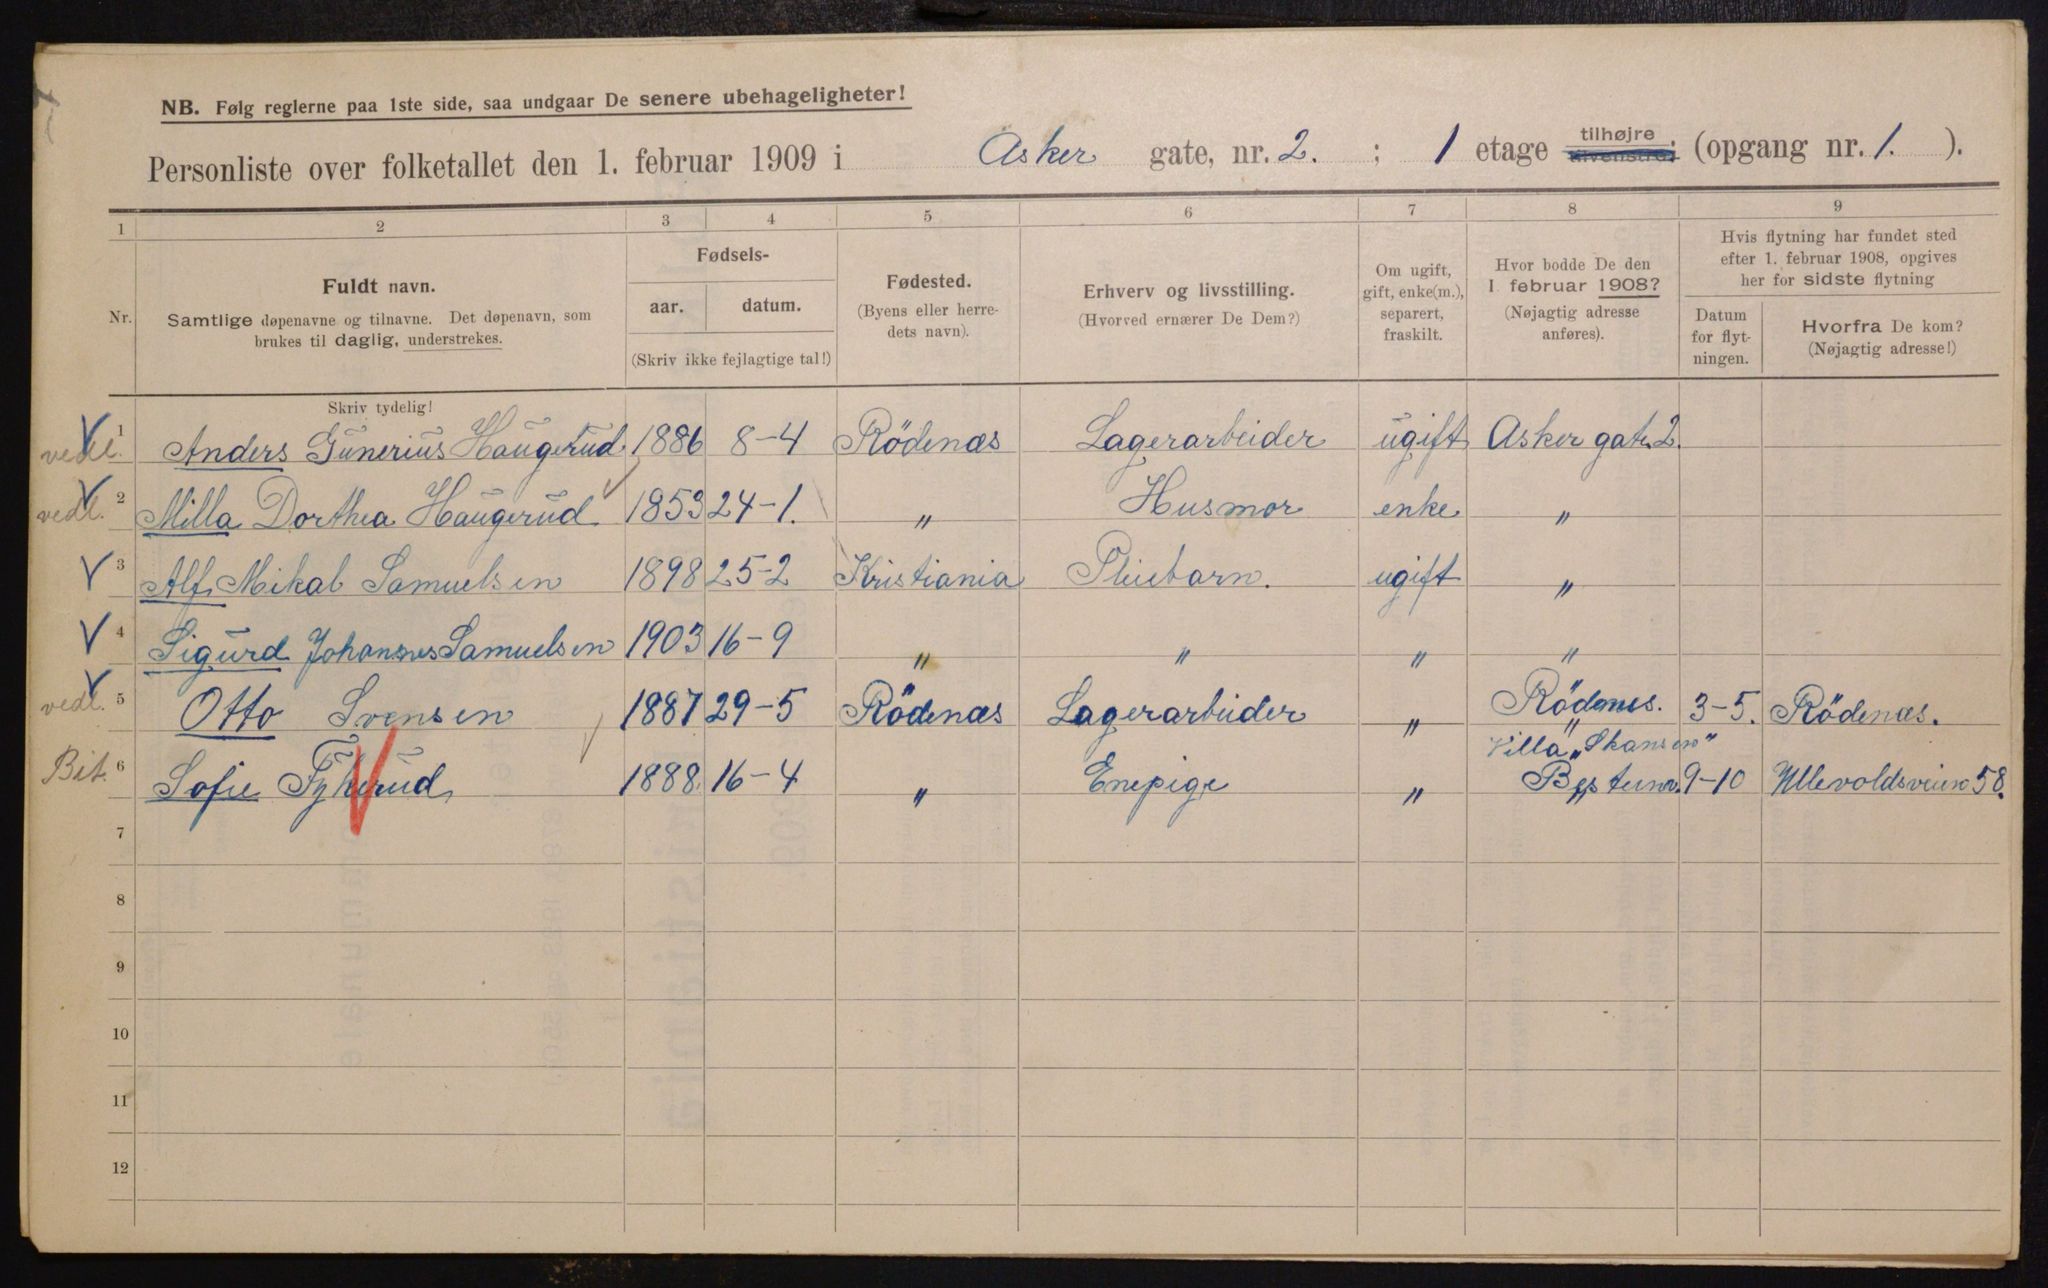 NB. Følg reglerne paa 1ste side, saa undgaar De senere ubehageligheter!
Personliste over folketallet den 1. februar 1909 i Asker gate, nr. 2. ; 1 etage tilhøjre tilvenstre; (opgang nr. 1. ).
1 2 3 4 5 6 7 8 9
Nr.
Fuldt navn.
Samtlige døpenavne og tilnavne. Det døpenavn, som
brukes til daglig, understrekes.
Skriv tydelig!
Fødsels-
aar. datum.
(Skriv ikke fejlagtige tal!)
Fødested.
(Byens eller herre-
dets navn).
Erhverv og livsstilling.
(Hvorved ernærer De Dem?)
Om ugift,
gift, enke(m.),
separert,
fraskilt.
Hvor bodde De den
1 februar 1908?
(Nøjagtig adresse
anføres).
Hvis flytning har fundet sted
efter 1. februar 1908, opgives
her for sidste flytning
Datum
for flyt-
ningen.
Hvorfra De kom?
(Nøjagtig adresse!)
vedl. 1 Anders Gunerius Haugerud 1886 8-4 Rödenæs Lagerarbeider ugift Asker gate 2.
vedl. 2 Milla Dorthea Haugerud 1853 24-1. " Husmor enke "
3 Alf Mikal Samuelsen 1898 25-2 Kristiania Pleiebarn. ugift "
4 Sigurd Johannes Samuelsen 1903 16-9 " " " "
vedl. 5 Otto Svensen 1887 29-5 Rödenæs Lagerarbeider " Rödenæs. 3-5. Rödenæs.
Villa "Skansen"
Bit. 6 Sofie 1888. 16-4 " Enepige " Bestum. 9-10 Ullevoldsveien 58.
7
8
9
10
11
12